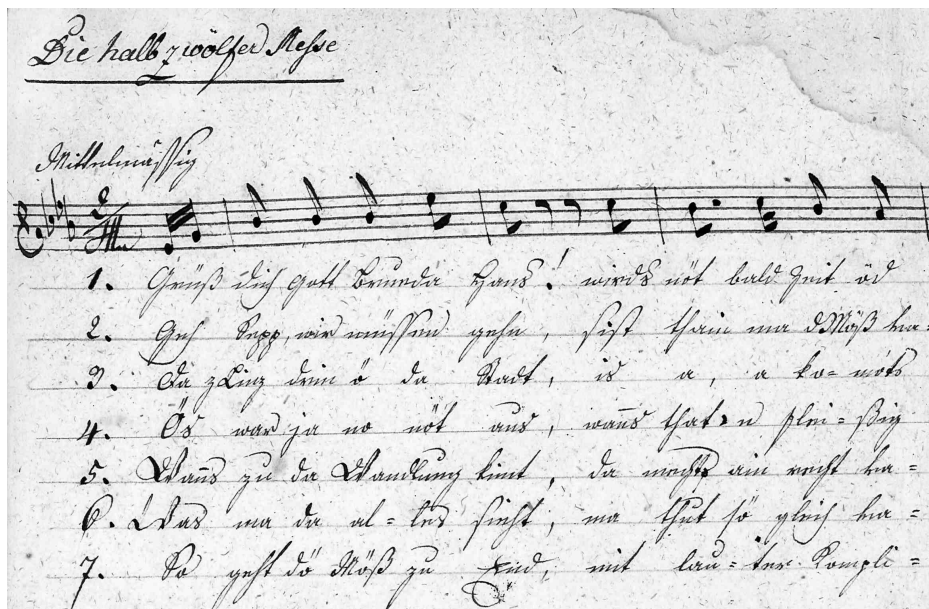 Die halb zwölfer Messe
Mittelmässig
1. Grüß dich Gott Brueda Hans! wirds nöt bald Zeit öd
2. Geh Sepp, wir müssen gehn, sist thain ma d Möß va-
3. Da z Linz drin ö da Stadt, is a, a ko-mots
4. Ös war ja no nöt aus, wanns thatn flei-ßig
5. Wanns zu da Wandlung kimt, da mechts ain recht va-
6. Was ma da al-les sieht, ma thut sö gleich va-
7. So geht dö Möß zu End, mit lau-ter Kompli-